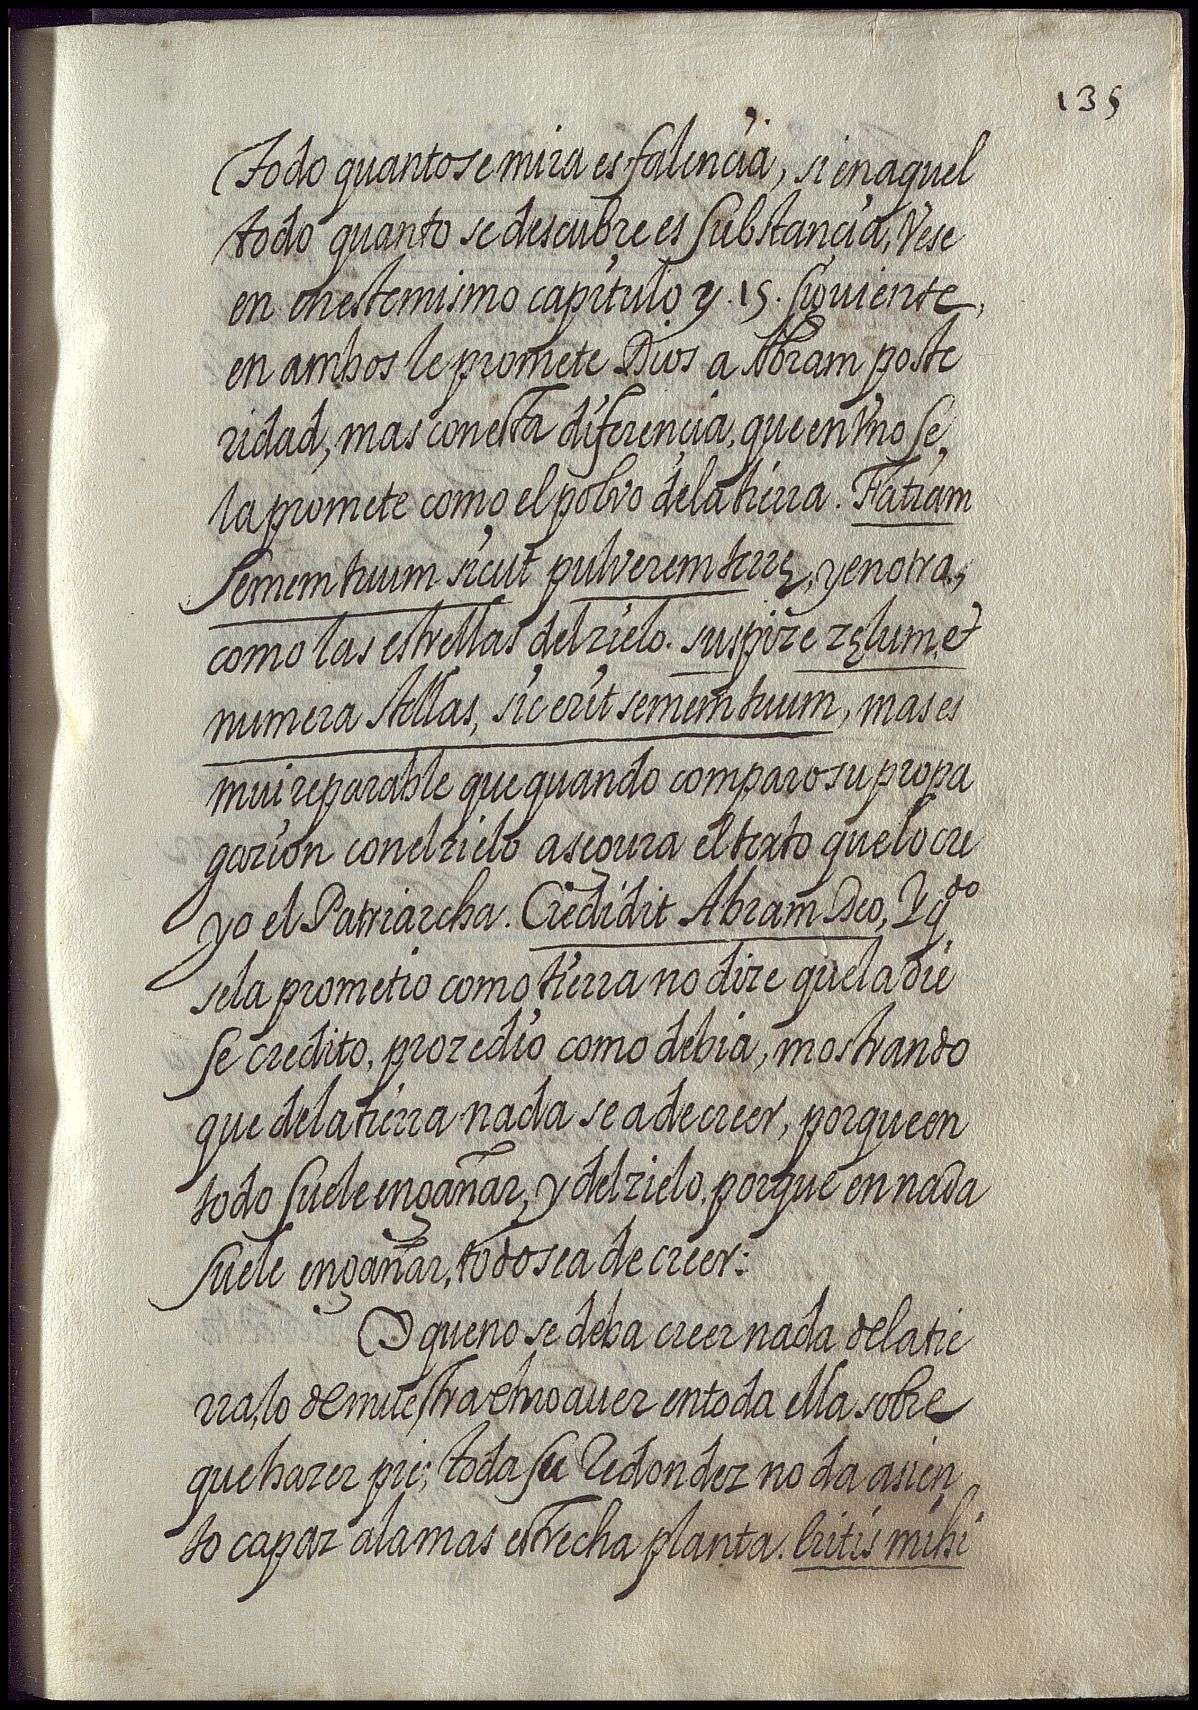 135
todo quanto se mira es falencia, si en aquel
todo quanto se descubre es substancia, Vese
en enestemismo capitulo y .15. siguiente,
en ambos le promete Dios a Abram poste
ridad, mas conesta diferencia, que en Vno se
la promete como el polvo dela tierra. Fatiam
semem tuum sicut pulverem terrę, y en otra,
como las estrellas del zielo. suspize zęlum, et
numera stellas, sic erit semem tuum, mas es
mui reparable que quando comparo su propa
gazion con el zielo asegura el texto que lo cre
yo el Patriarcha. Credidit Abram Deo, Y qdo
sela prometio como tierra no dize que la die
se credito, prozedio como debia, mostrando
que dela tierra nada se a de creer, porque en
todo suele engañar, y del zielo, porque en nada
suele engañar, todo sea de creer:
O que no se deba creer nada dela tie
rra, lo demuestra el no auer en toda ella sobre
que hazer pie; toda su Redondez no da asien
to capaz ala mas estrecha planta. Eritis mihi